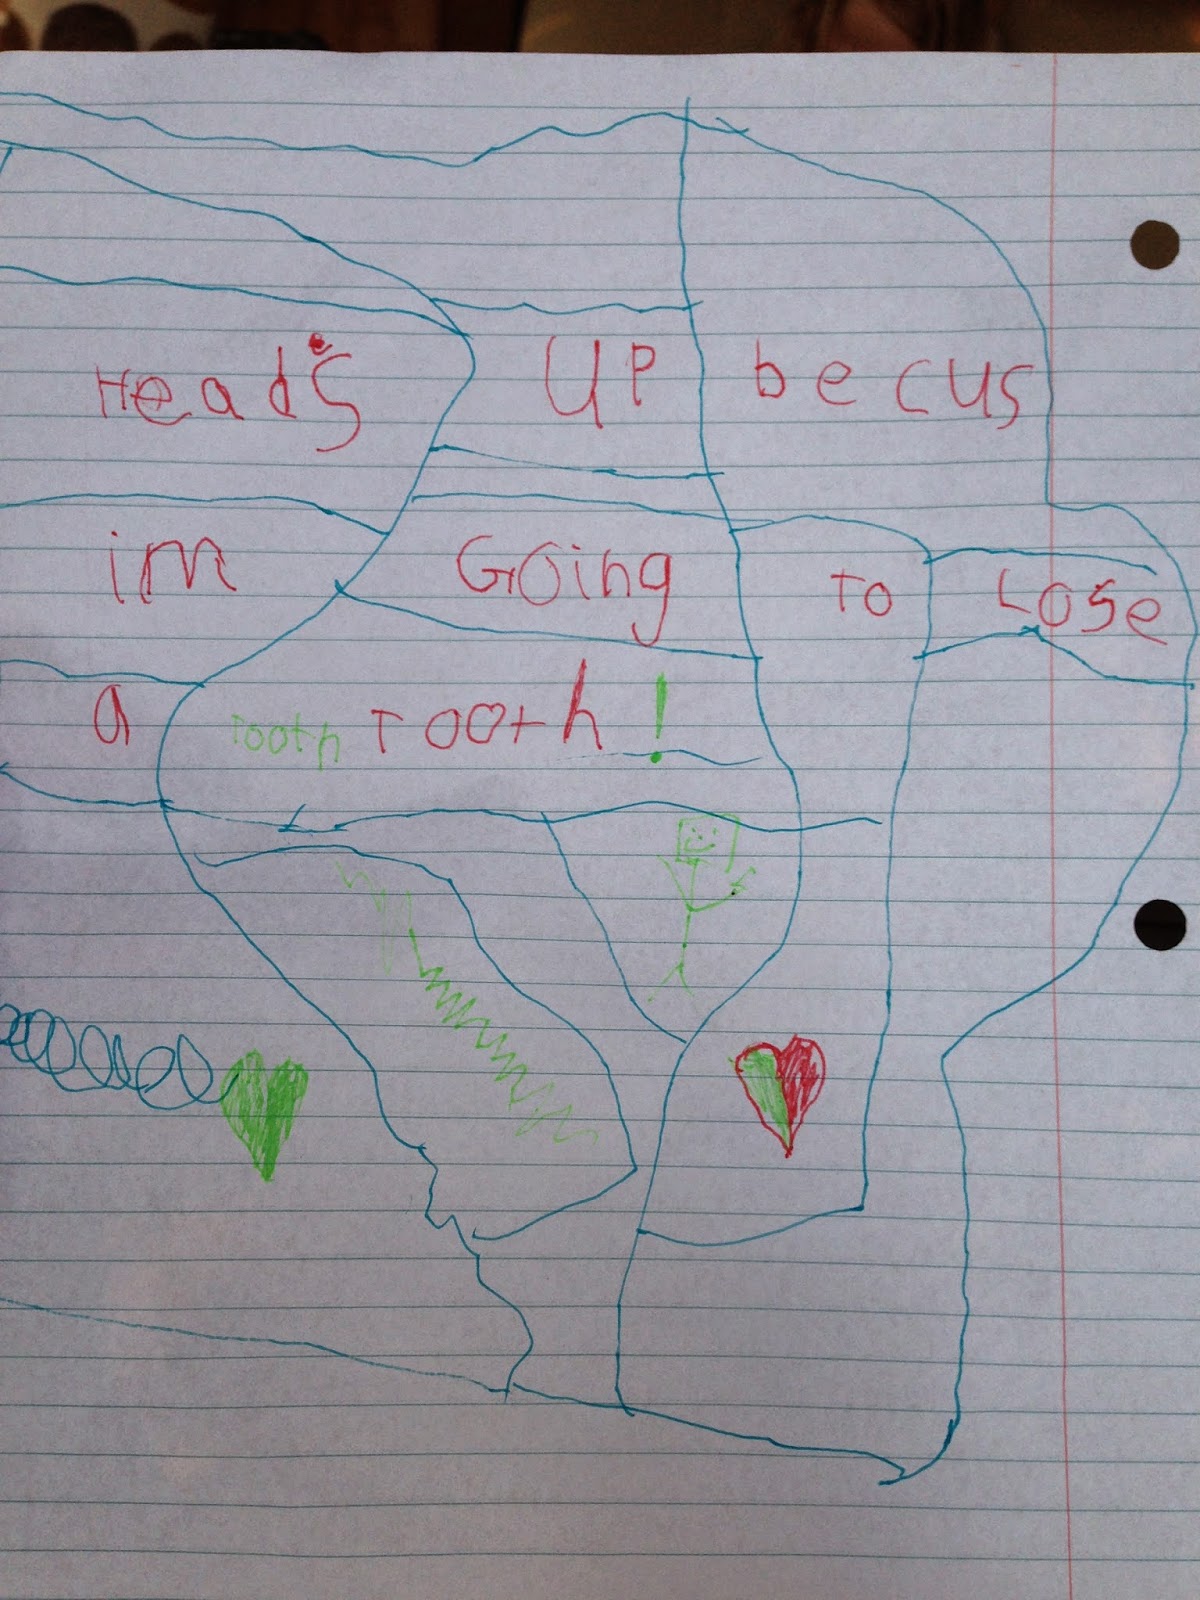 Heads UP becus
im Going To Lose
a Tooth Tooth!